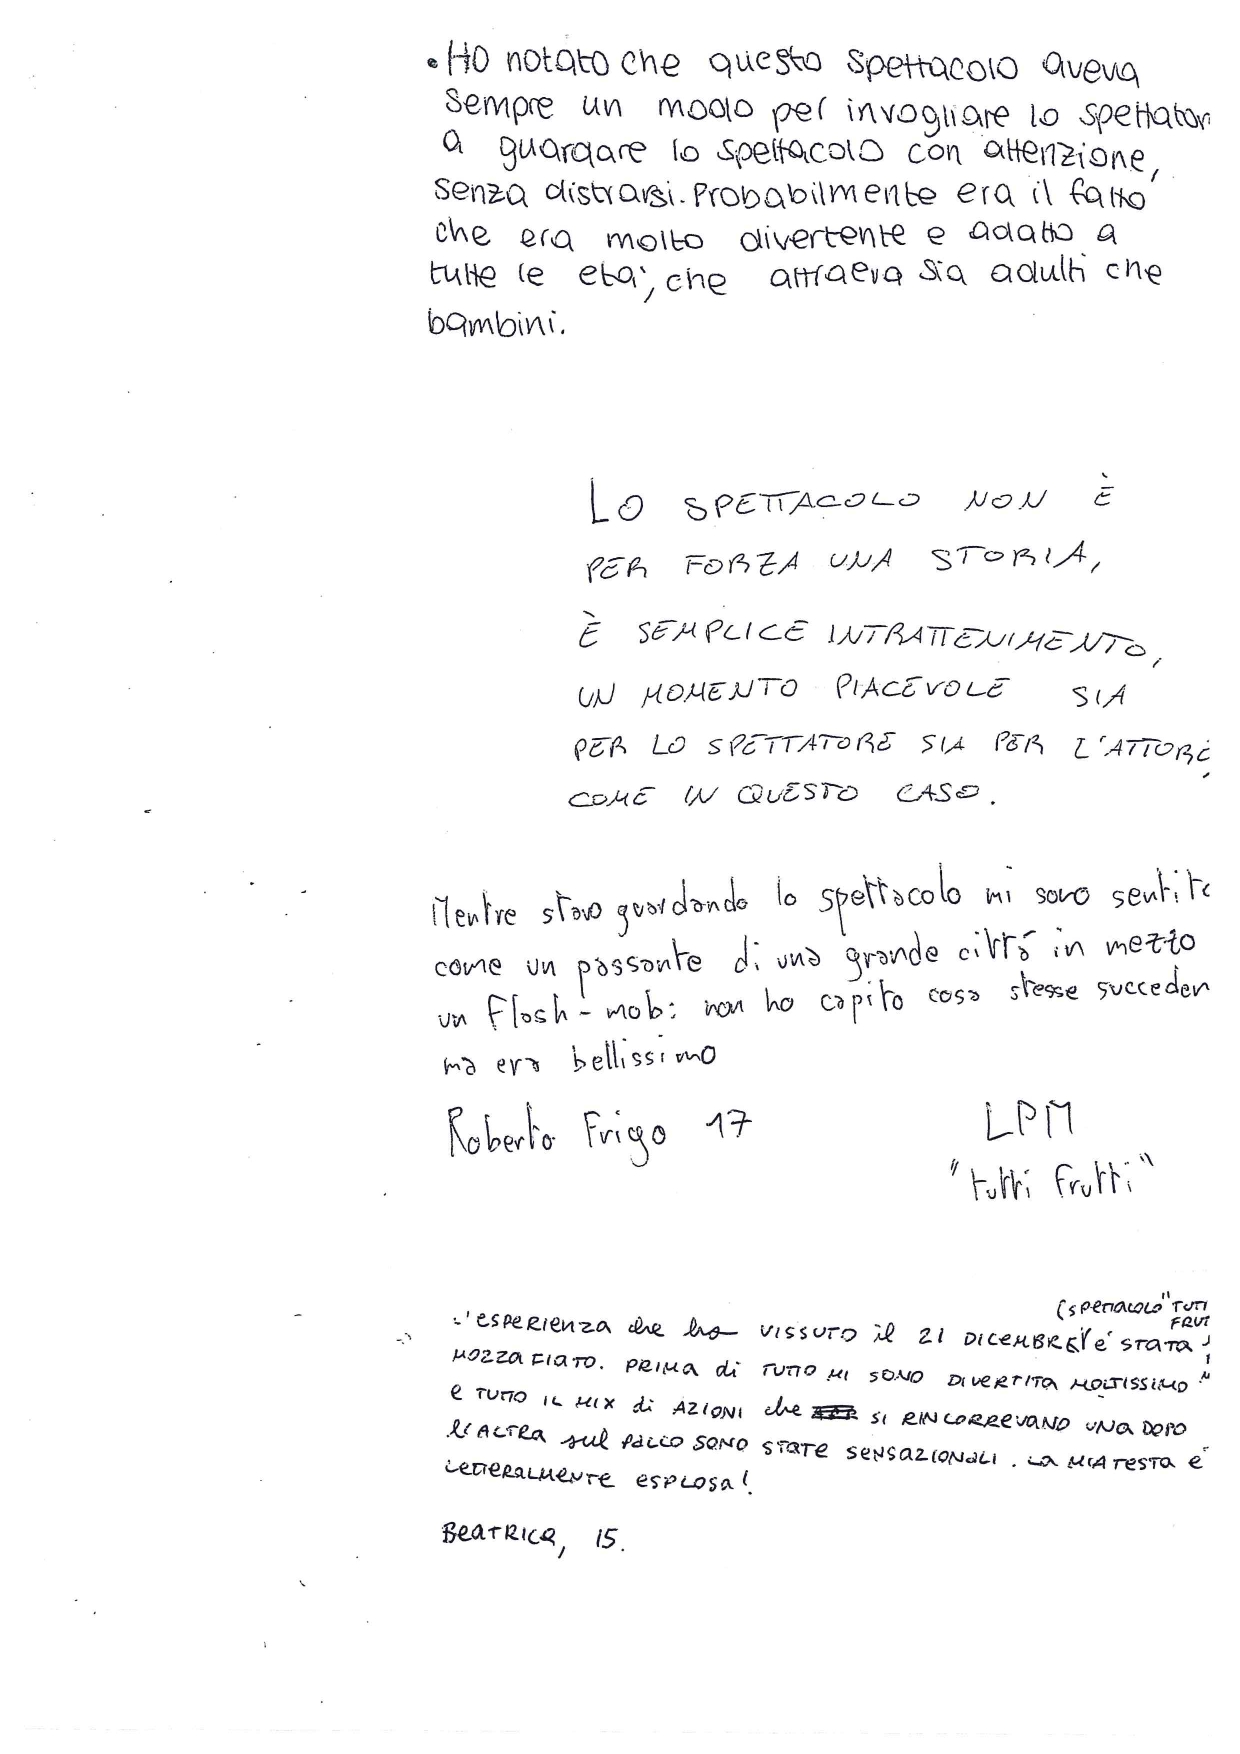 • Ho notato che questo spettacolo aveva
sempre un modo per invogliare lo spettator
a guardare lo spettacolo con attenzione,
senza distrarsi. Probabilmente era il fatto
che era molto divertente e adatto a
tutte le eta', che attraeva sia adulti che
bambini.
LO SPETTACOLO NON È
PER FORZA UNA STORIA,
È SEMPLICE INTRATTENIMENTO,
UN MOMENTO PIACEVOLE SIA
PER LO SPETTATORE SIA PER L'ATTORE,
COME IN QUESTO CASO.
Mentre stavo guardando lo spettacolo mi sono sentito
come un passante di una grande cittá in mezzo
un Flash-mob: non ho capito cosa stesse succeden
ma era bellissimo
Roberto Frigo 17
LPM
"tutti frutti"
(spettacolo "TUTTI
FRUT
L'esperienza che ho vissuto il 21 DICEMBRE è STATA
MOZZAFIATO. PRIMA di TUTTO MI SONO DIVERTITA MOLTISSIMO
e TUTTO IL MIX di AZIONI che SI RINCORREVANO UNA DOPO
L'ALTRA sul PALCO SONO STATE SENSAZIONALI. LA MIA TESTA È
LETTERALMENTE ESPLOSA!
BEATRICE, 15.